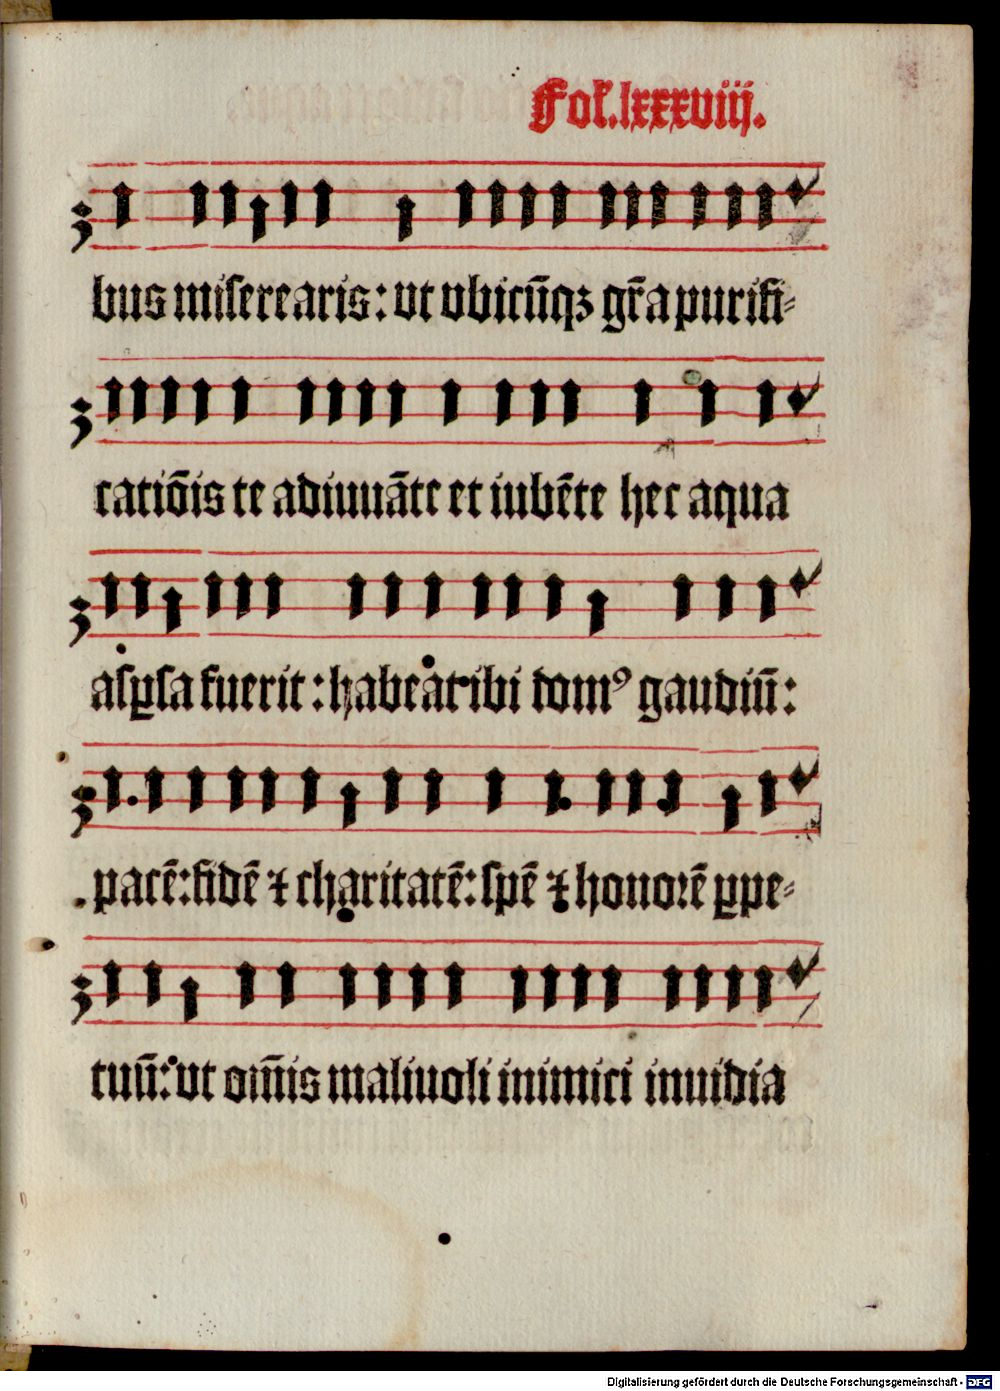 Fol. lxxxviij.
bus miserearis: ut ubicūqꝫ gr̄a purifi-
catiōis te adiuuāte et iubēte hec aqua
asꝑsa fuerit: habeat ibi domꝰ gaudiū:
pacē: fidē ⁊ charitatē: spē ⁊ honorē ꝑpe-
tuū: ut om̄is maliuoli inimici inuidia
Digitalisierung gefördert durch die Deutsche Forschungsgemeinschaft - DFG